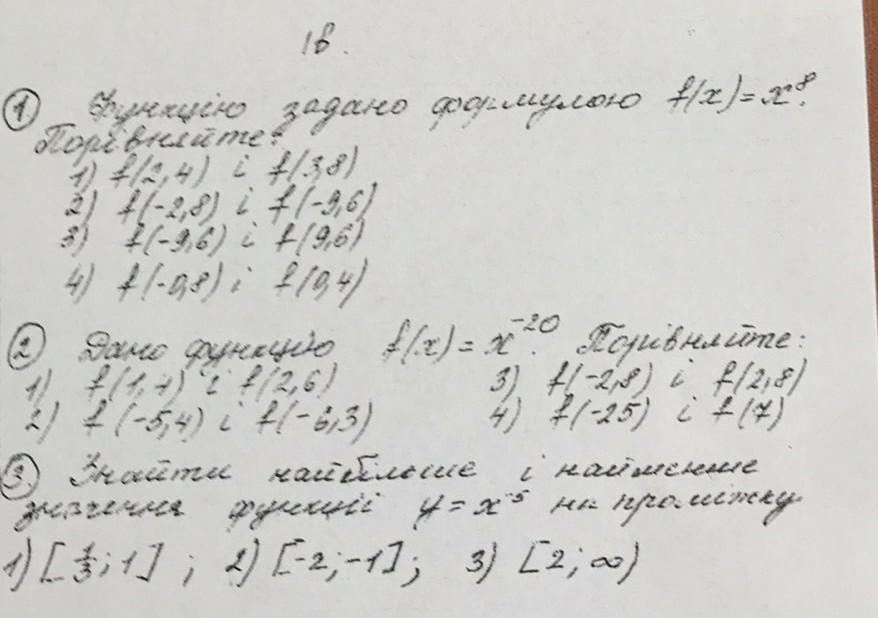 Iв.
① Функцію задано формулою f(x)=x⁸.
Порівняйте:
1) f(2,4) і f(3,8)
2) f(-2,8) і f(-9,6)
3) f(-9,6) і f(9,6)
4) f(-0,8) і f(0,4)
② Дано функцію f(x)=x⁻²⁰. Порівняйте:
1) f(1,4) і f(2,6) 3) f(-2,8) і f(2,8)
2) f(-5,4) і f(-6,3) 4) f(-25) і f(7)
③ Знайти найбільше і найменше
значення функції y=x⁻⁵ на проміжку
1) [1/3; 1] ; 2) [-2; -1]; 3) [2; ∞)